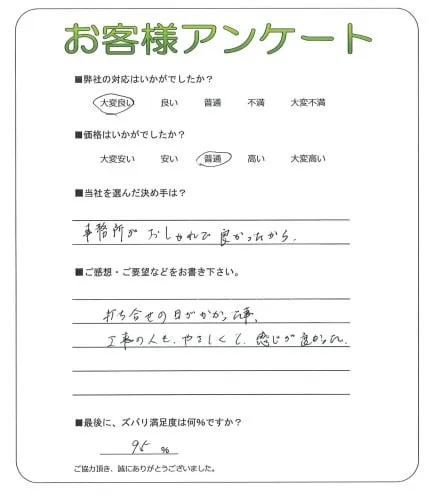 お客様アンケート
■弊社の対応はいかがでしたか?
大変良い 良い 普通 不満 大変不満
■価格はいかがでしたか?
大変安い 安い 普通 高い 大変高い
■当社を選んだ決め手は?
事務所がおしゃれで良かったから。
■ご感想・ご要望などをお書き下さい。
打ち合せの日がかかった事、
工事の人も、やさしくて、感じが良かった。
■最後に、ズバリ満足度は何%ですか?
95 %
ご協力頂き、誠にありがとうございました。